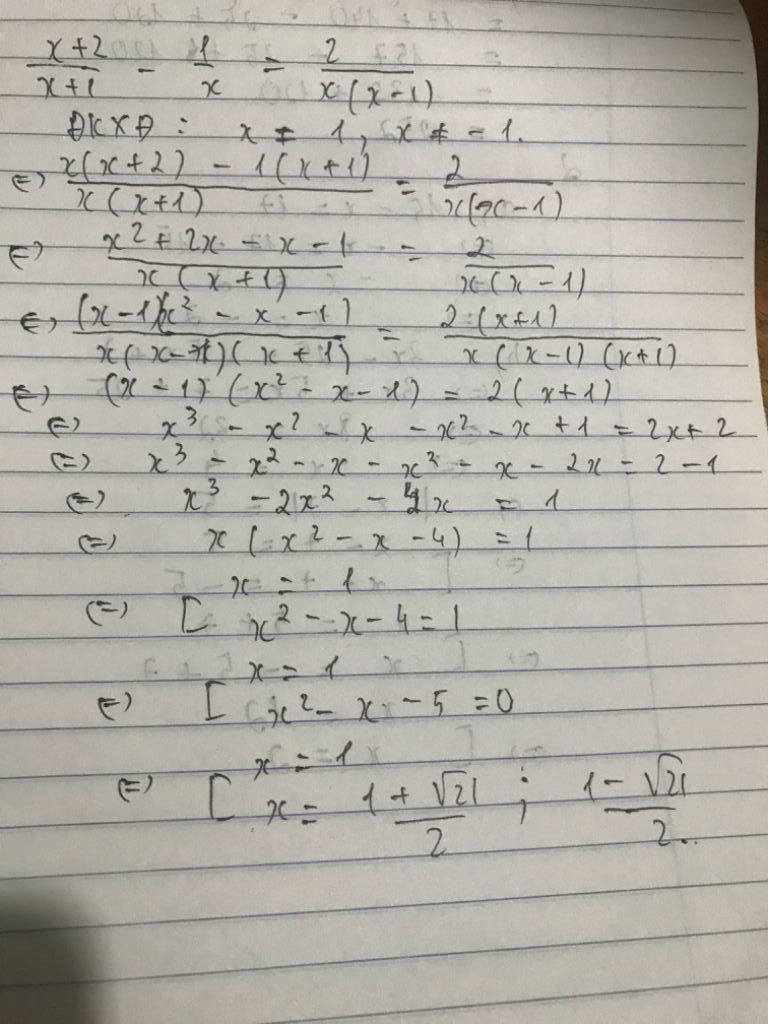 x+2/x+1 - 1/x = 2/x(x-1)
ĐKXĐ : x ≠ 1, x ≠ -1.
⇔ x(x+2) - 1(x+1)/x(x+1) = 2/x(x-1)
⇔ x² + 2x - x - 1/x(x+1) = 2/x(x-1)
⇔ (x-1)(x² - x - 1)/x(x-1)(x+1) = 2(x+1)/x(x-1)(x+1)
⇔ (x-1)(x² - x - 1) = 2(x+1)
⇔ x³ - x² - x - x² - x + 1 = 2x + 2
⇔ x³ - x² - x - x² - x - 2x = 2 - 1
⇔ x³ - 2x² - 4x = 1
⇔ x(x² - x - 4) = 1
⇔ [ x = 1
x² - x - 4 = 1
⇔ [ x = 1
x² - x - 5 = 0
⇔ [ x = 1
x = 1 + √21/2 ; 1 - √21/2.